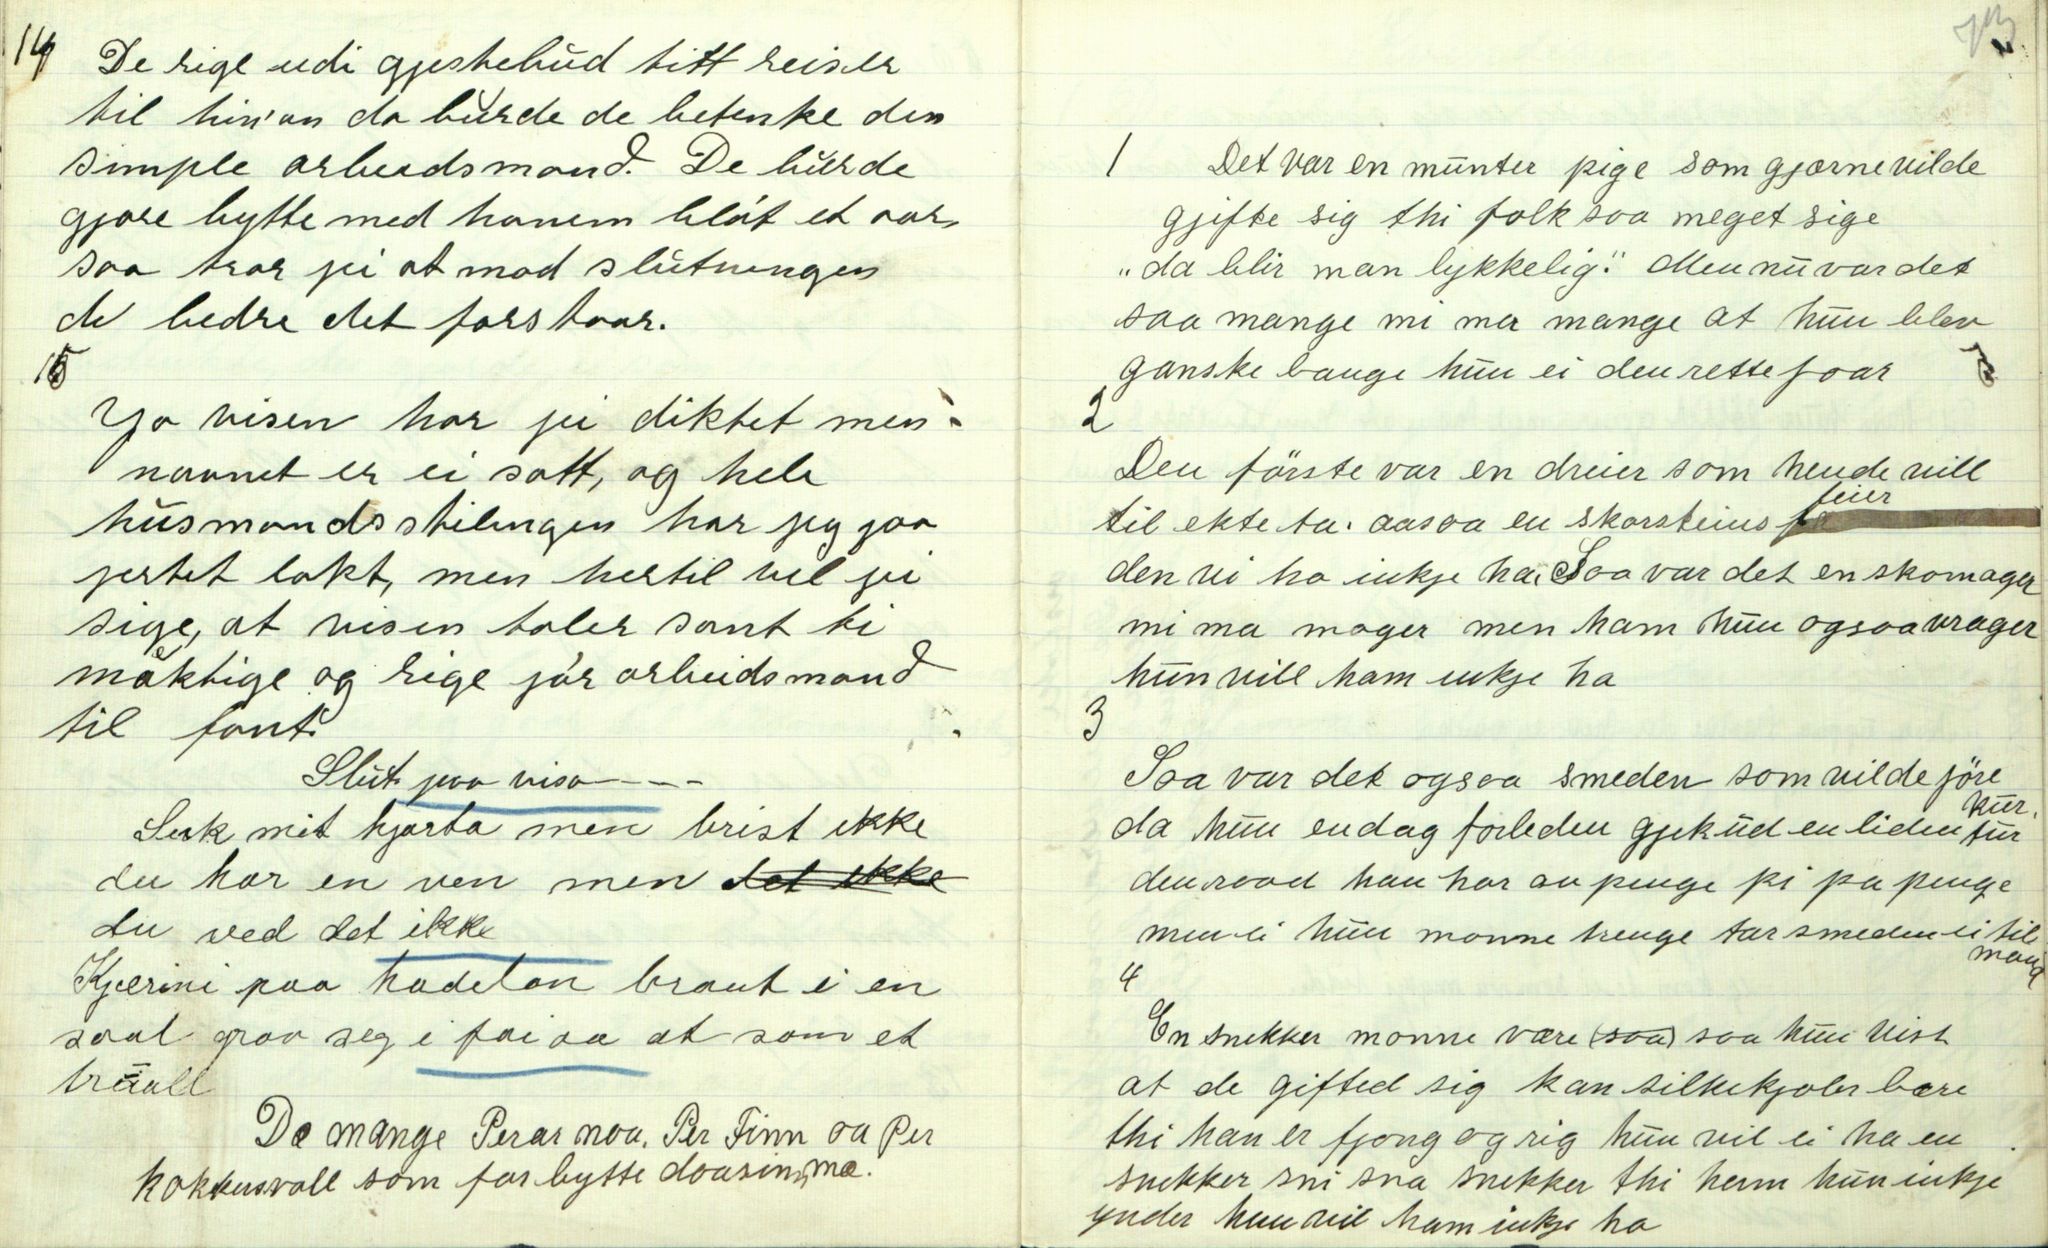 14 De rige udi gjestebud titt reiser
til hin'an da burde de betenke den
simple arbeidsmand. De burde
gjøre bytte med hanem blåt et aar,
saa tror jei at mod slutningen
de bedre det forstaar.
15
Ja visen har jei diktet men
navnet er ei satt, og hele
husmandsstilingen har jeg paa
jertet lakt, men hertil vel jei
sige, at visen taler sant ti
mäktige og rige jør arbeidsmand
til fant.
Slut paa visa ---
Suk mit hjarta men brist ikke
du har en ven men det ikke
du ved det ikke
Kjærini paa hadelan braut i en
saal graa seg i fai aa at som et
träall
De mange Perar noa. Per Finn aa Per
kokkersvoll som far bytte doasin, ma.
1 Det var en munter pige som gjærne vilde
gjifte sig thi folk saa meget sige
"da blir man lykkelig." Men nu var det
saa mange mi ma mange at hun blev
ganske bange hun ei den rette faar
2
Den förste var en dreier som hende vill
feier
til ekte ta. aasaa en skorsteins
den vi ha inkje ha, Saa var det en skomager
mi ma mager men ham hun ogsaa vrager
hun vill ham inkje ha
3
Saa var det ogsaa smeden som vilde jöre
kur.
da hun endag forleden gjek ud en liden tur
den raad han har au penge pi pa penge
men ei hun monne trenge tar smeden ei til
mand
4
En snekker monne være (saa) saa hun vist
at de gifted sig kan silkekjoler bære
thi han er fjong og rig hun vil ei ha en
snekker sni sna snekker thi ham hun inkje
ynder hun vil ham inkje ha